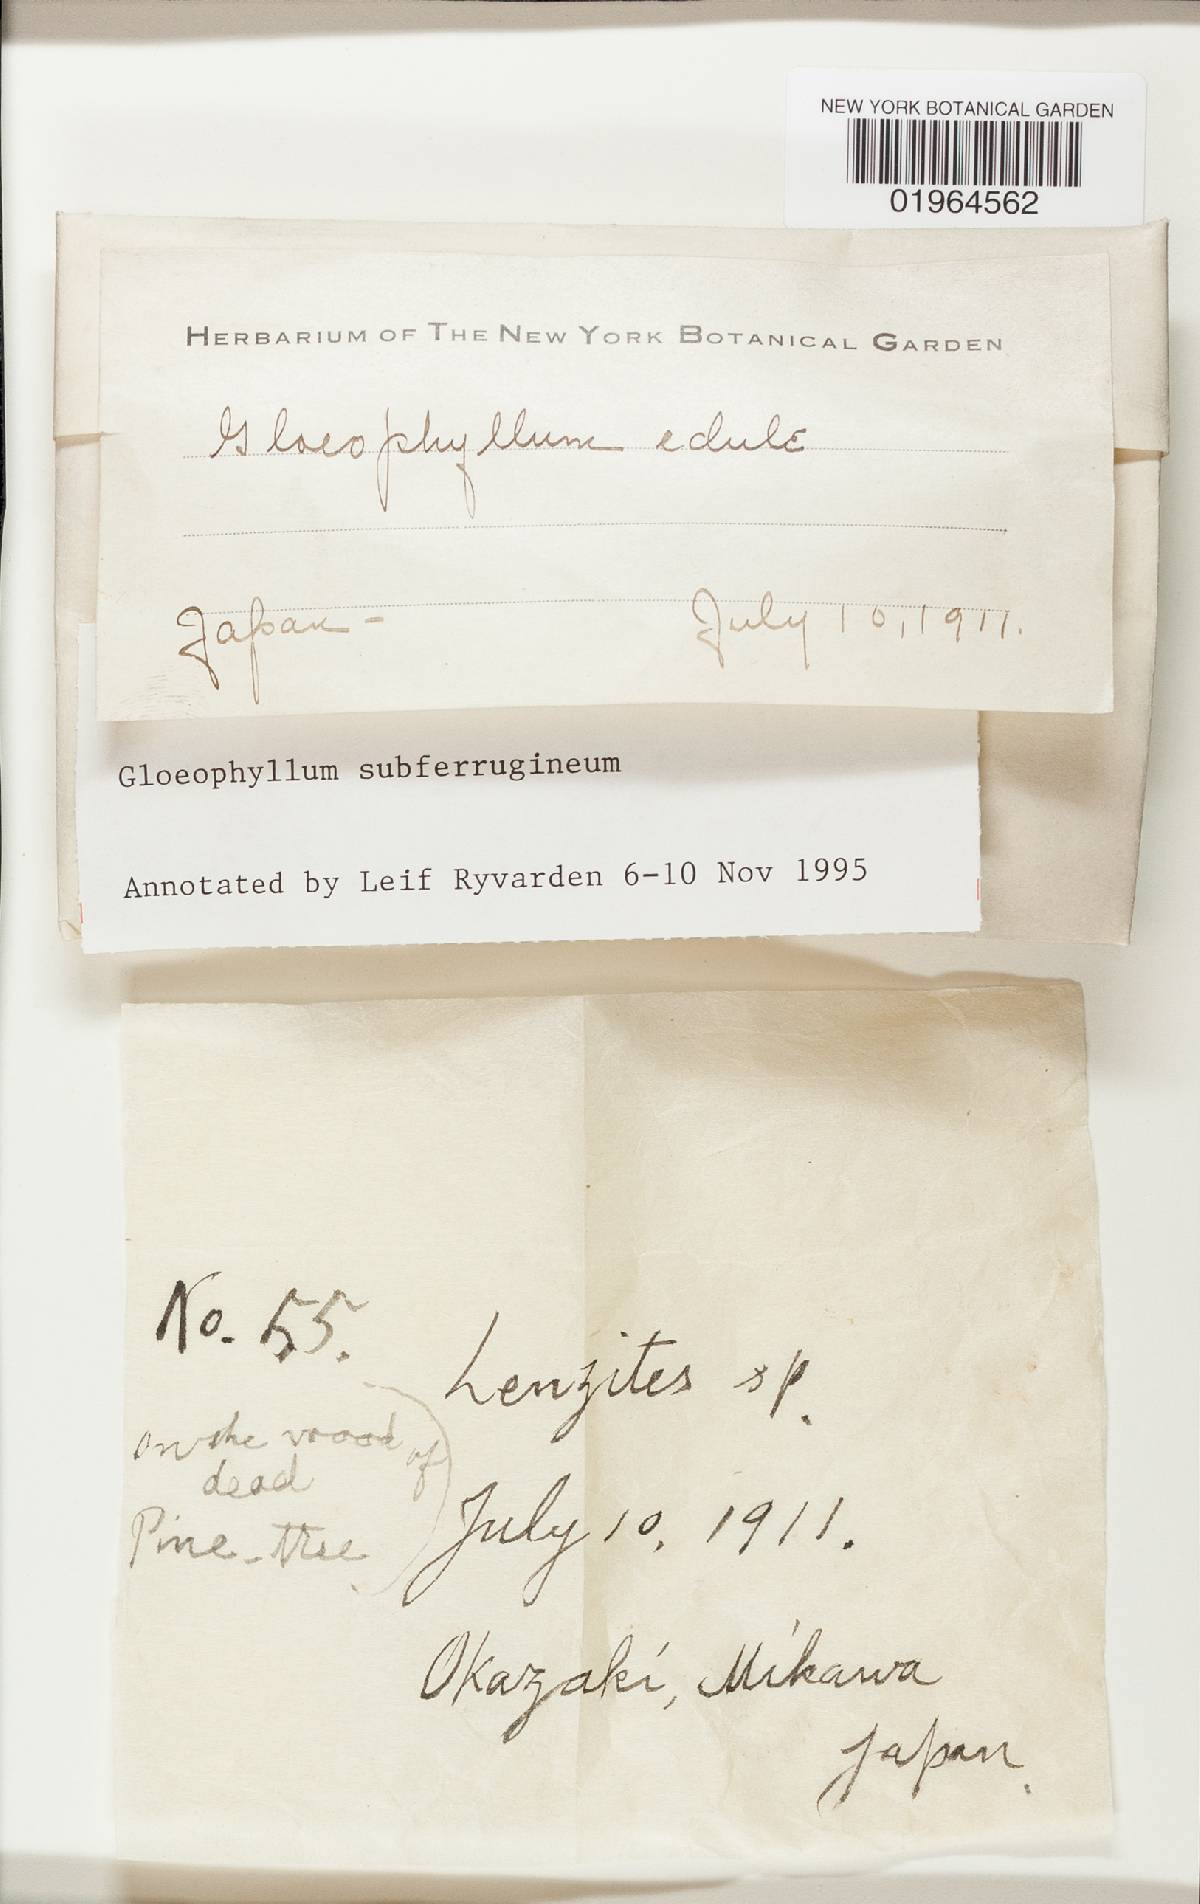 NEW YORK BOTANICAL GARDEN
01964562
HERBARIUM OF THE NEW YORK BOTANICAL GARDEN
Gloeophyllum edule
Japan - July 10, 1911.
Gloeophyllum subferrugineum
Annotated by Leif Ryvarden 6-10 Nov 1995
No. 55.
Lenzites sp.
On the wood of
dead
Pine-tree.
July 10, 1911.
Okazaki, Mikawa
Japan.